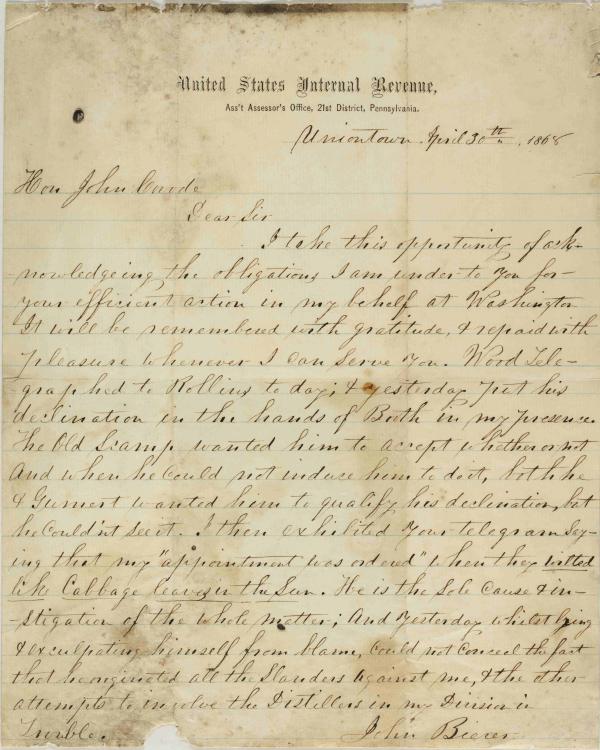 United States Internal Revenue,
Ass't Assessor's Office, 21st District, Pennsylvania.
Uniontown April 30th, 1868
Hon John Covode
Dear Sir
I take this opportunity of ack-
-nowledgeing the obligations I am under to you for
your efficient action in my behalf at Washington
It will be remembered with gratitude, & repaid with
pleasure whenever I can serve you. Wood Tele-
graphed to Rollins to day; & yesterday put his
declination in the hands of Both in my presence.
The Old Scamp wanted him to accept whether or not
And when he could not induce him to do it, both he
& Gumert wanted him to qualify his declination, but
he couldn't see it. I then exhibited your telegram say-
ing that my "appointment was ordered" when they wilted
like Cabbage leaves in the Sun. He is the Sole Cause & in-
-stigation of the whole matter; And yesterday whilst lying
& exculpating himself from blame, could not conceal the fact
that he originated all the Slanders against me, & the other
attempts to involve the Distillers in my Division in
Trouble. John Bierer